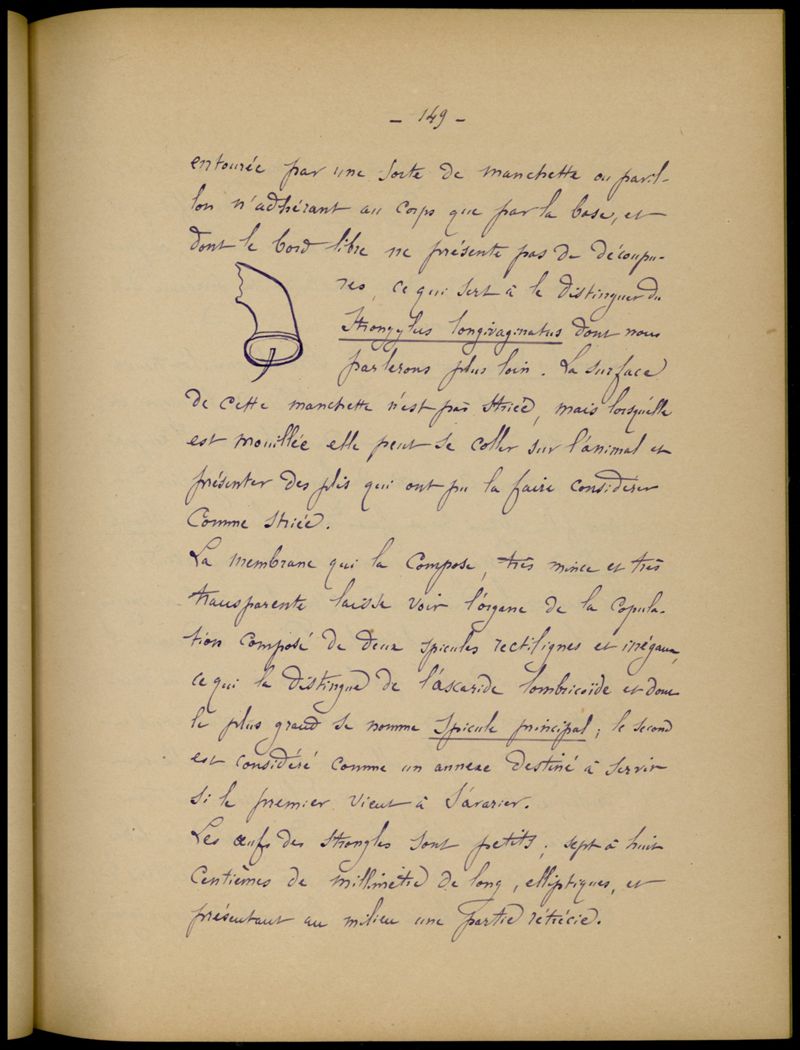 - 149 -
entourée par une sorte de manchette ou pavil-
lon n'adhérant au corps que par la base, et
dont le bord libre ne présente pas de découpu-
res, ce qui sert à le distinguer du
Strongylus longivaginatus dont nous
parlerons plus loin. La surface
de cette manchette n'est pas striée, mais lorsqu'elle
est mouillée elle peut se coller sur l'animal et
présenter des plis qui ont pu la faire considérer
comme striée.
La membrane qui la compose, très mince et très
transparente laisse voir l'organe de la copula-
tion composé de deux spicules rectilignes et inégaux,
ce qui le distingue de l'ascaride lombricoïde et dont
le plus grand se nomme Spicule principal; le second
est considéré comme un annexe destiné à servir
si le premier vient à s'avarier.
Les œufs des strongles sont petits; sept à huit
centièmes de millimètre de long, elliptiques, et
présentant au milieu une partie rétrécie.